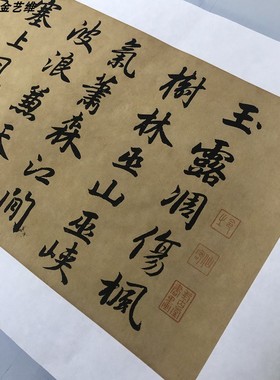 金艺维
玉露凋傷楓
樹林巫山巫峽
氣蕭森江間
波浪兼天
塞上風